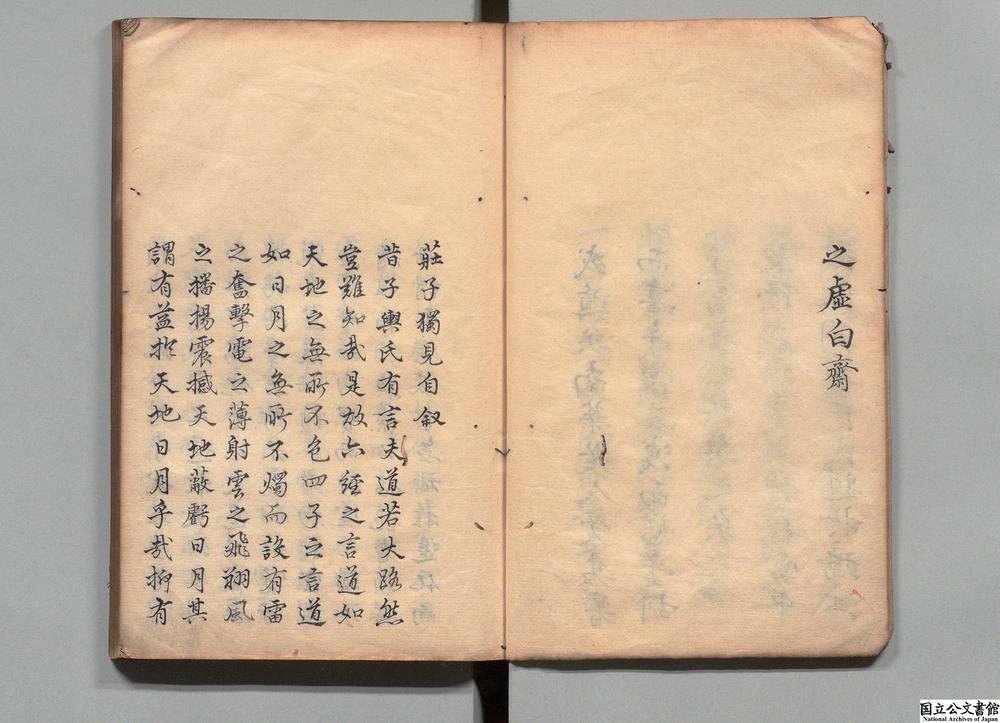 之虛白齋
莊子獨見自叙
昔子輿氏有言夫道若大路然
豈難知哉是故六經之言道如
天地之無所不包四子之言道
如日月之無所不燭而設有雷
之奮擊電之薄射雲之飛翔風
之播揚震撼天地蔽虧日月其
謂有益於天地日月乎哉抑有
国立公文書館
National Archives of Japan